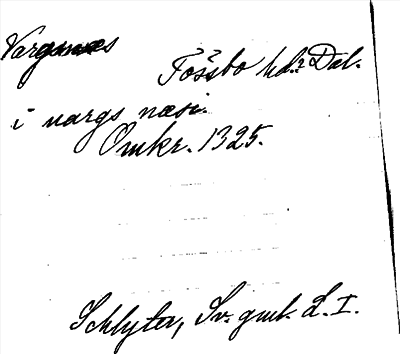 Vargnæs
Tössbo hd. Dal.
i vargs næsi.
Omkr. 1325.
Schlyter, Sv. gml. L. I.